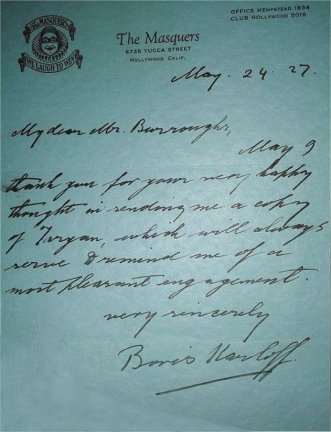 OFFICE HEMPSTEAD 1834
CLUB HOLLYWOOD 5016
THE MASQUERS
WE LAUGH TO WIN
The Masquers
6735 YUCCA STREET
HOLLYWOOD, CALIF.
May. 24. 27.
My dear Mr. Burroughs,
May I
thank you for your very happy
thought in sending me a copy
of Tarzan, which will always
serve to remind me of a
most pleasant engagement.
very sincerely
Boris Karloff.